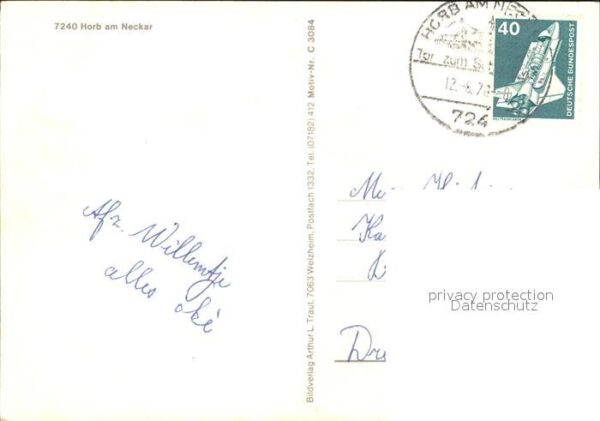 7240 Horb am Neckar
Bildverlag Arthur L. Traut, 7063 Welzheim, Postfach 1332, Tel. (07182) 412 Motiv-Nr. C 3084
HORB AM NE
Tor zum S
12.-6.7
724
40
DEUTSCHE BUNDESPOST
Afz. Willemtje
alles oké
privacy protection
Datenschutz